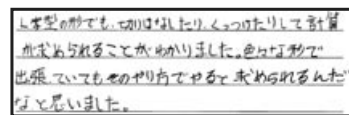 L字型の形でも、切りはなしたり、くっつけたりして計算
が求められることがわかりました。色々な形で
出張ていてもそのやり方でやると求められるんだ
なと思いました。